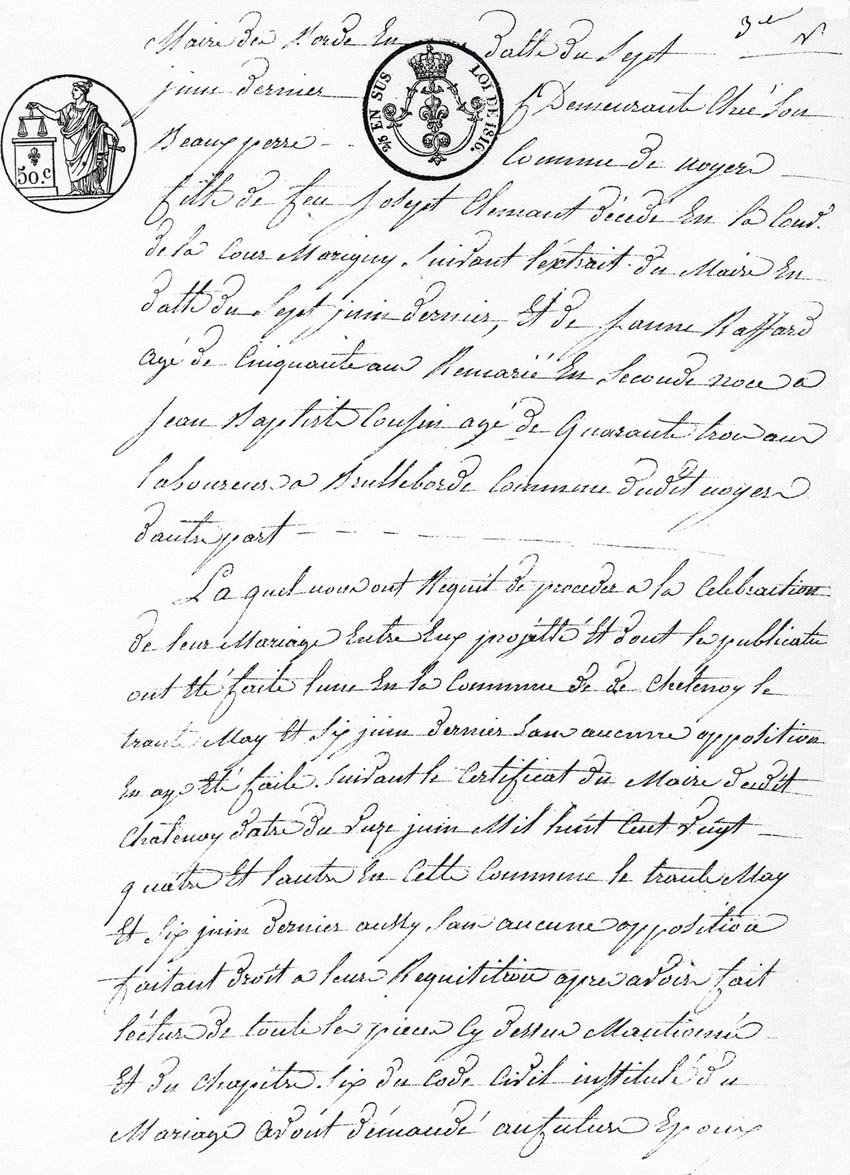 3e N
Maire de Norde En datte du Sept
juin dernier Demeurante Chée Son
Beauxperre Commune de noyers
fille de feu Josept Clemant décédé En la Coud.
de la Cour Marigny, Suivant l'éxtrait du Maire En
datte du Sept juin dernier, Et de Janne Raffard
agé de Cinquante ans Remarié En Seconde noce a
Jean Baptiste Cousin agé de Quarante trois ans
laboureur a Brulleborde Commune dudit noyers
dautre part
La quel nous ont Requit de proceder a la Celebraction
de leur Mariage Entre Eux projétté Et dont les publicatu
ont Eté faite lune En la Commune de de Chatenoy le
trante May Et Six juin dernier Sans aucunne opposition
En aye Eté faite, Suivant le Certificat du Maire dudit
Chatenoy datte du Luze juin Mil huit Cent Vingt
quatre Et lautre En Cette Commune le trante May
Et Six juin dernier aussy Sans aucune opposition
faitant droit a leurs Requitition apres avoir fait
lécture de toute les pieces Cy dessus Mantionné
Et du Chapitre Six du Code Civil institulé du
Mariage avont démandé au future Epoux
50.c
EN SUS LOI DE 1816.